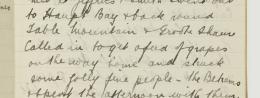 to Haupt Bay & back round
Table Mountain & Groote Schuur
Called in to get a feed of grapes
on the way home and struck
some jolly fine people - the Behrens
& spent the afternoon with them.